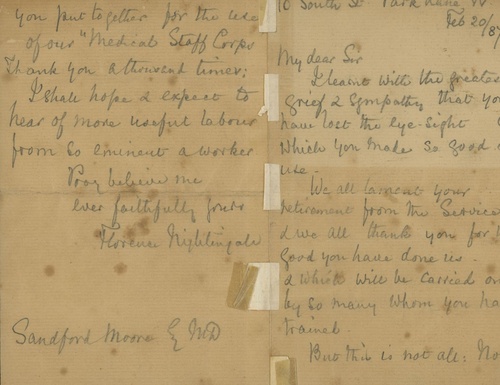 10 South St Park Lane W.
Feb 20/87
My dear Sir
I learnt with the greates
grief & sympathy that you
have lost the eye-sight
which you made so good
use.
We all lament your
retirement from the Service
& we all thank you for
good you have done us.
& which will be carried on
by so many whom you ha
trained.
But this is not all: No
you put together for the use
of our "Medical Staff Corps
Thank you a thousand times:
I shall hope & expect to
hear of more useful labour
from so eminent a worker
Pray believe me
ever faithfully yours
Florence Nightingale
Sandford Moore Esq MD